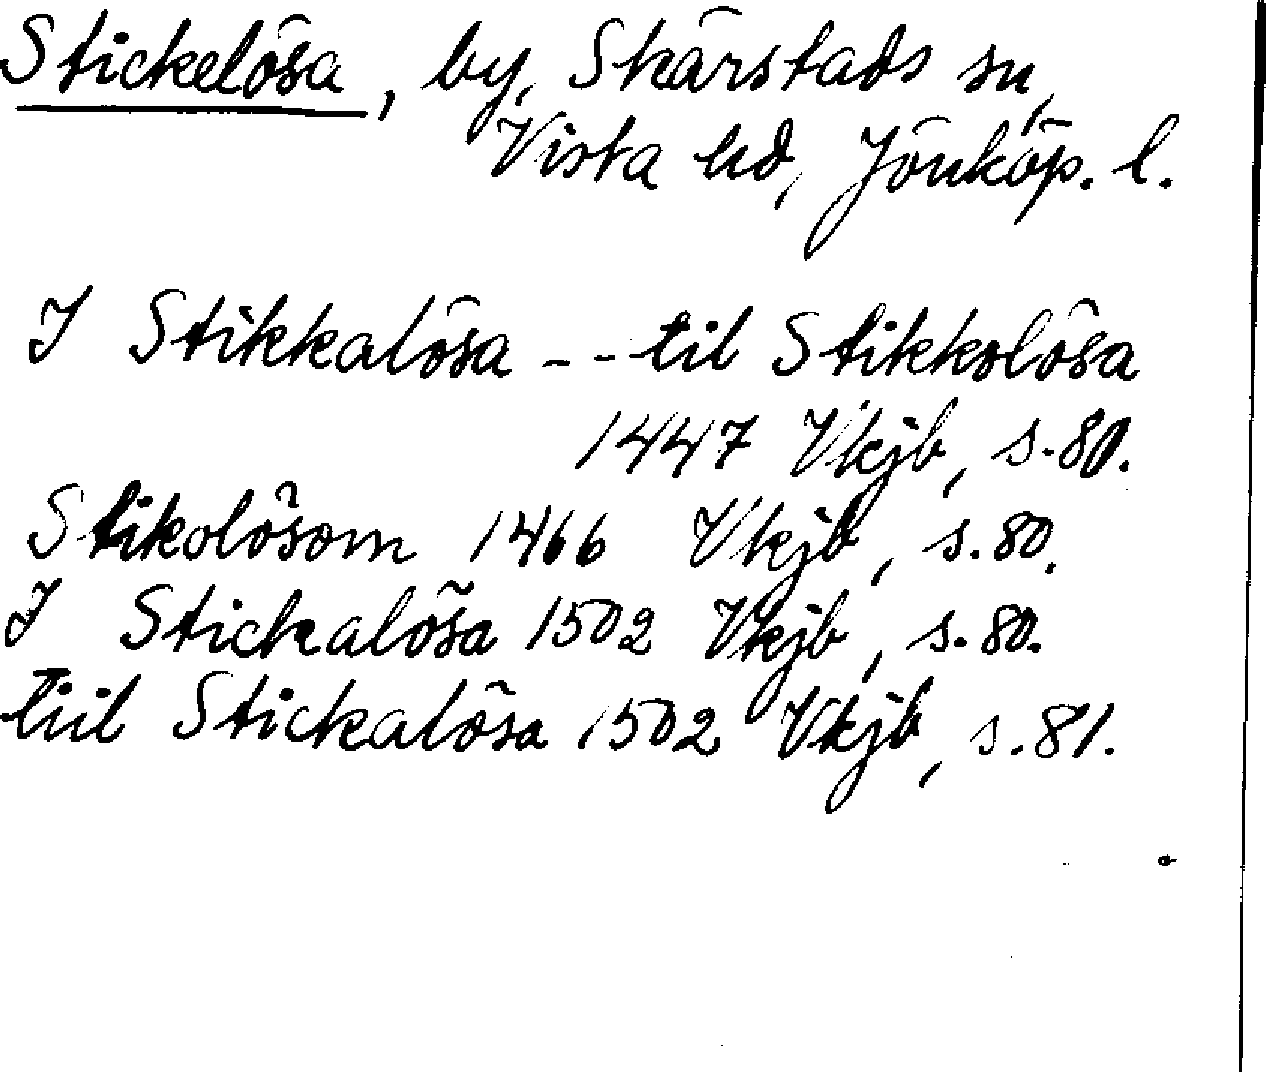 Stickelösa, by, Skärstads sn,
Vista hd, Jönköp. l.
I Stikkalösa -- til Stikkolösa
1447 Vkjb, s. 80.
Stikolösom 1466 Vkjb, s. 80.
I Stickalösa 1502 Vkjb, s. 80.
tiil Stickalösa 1502 Vkjb, s. 81.